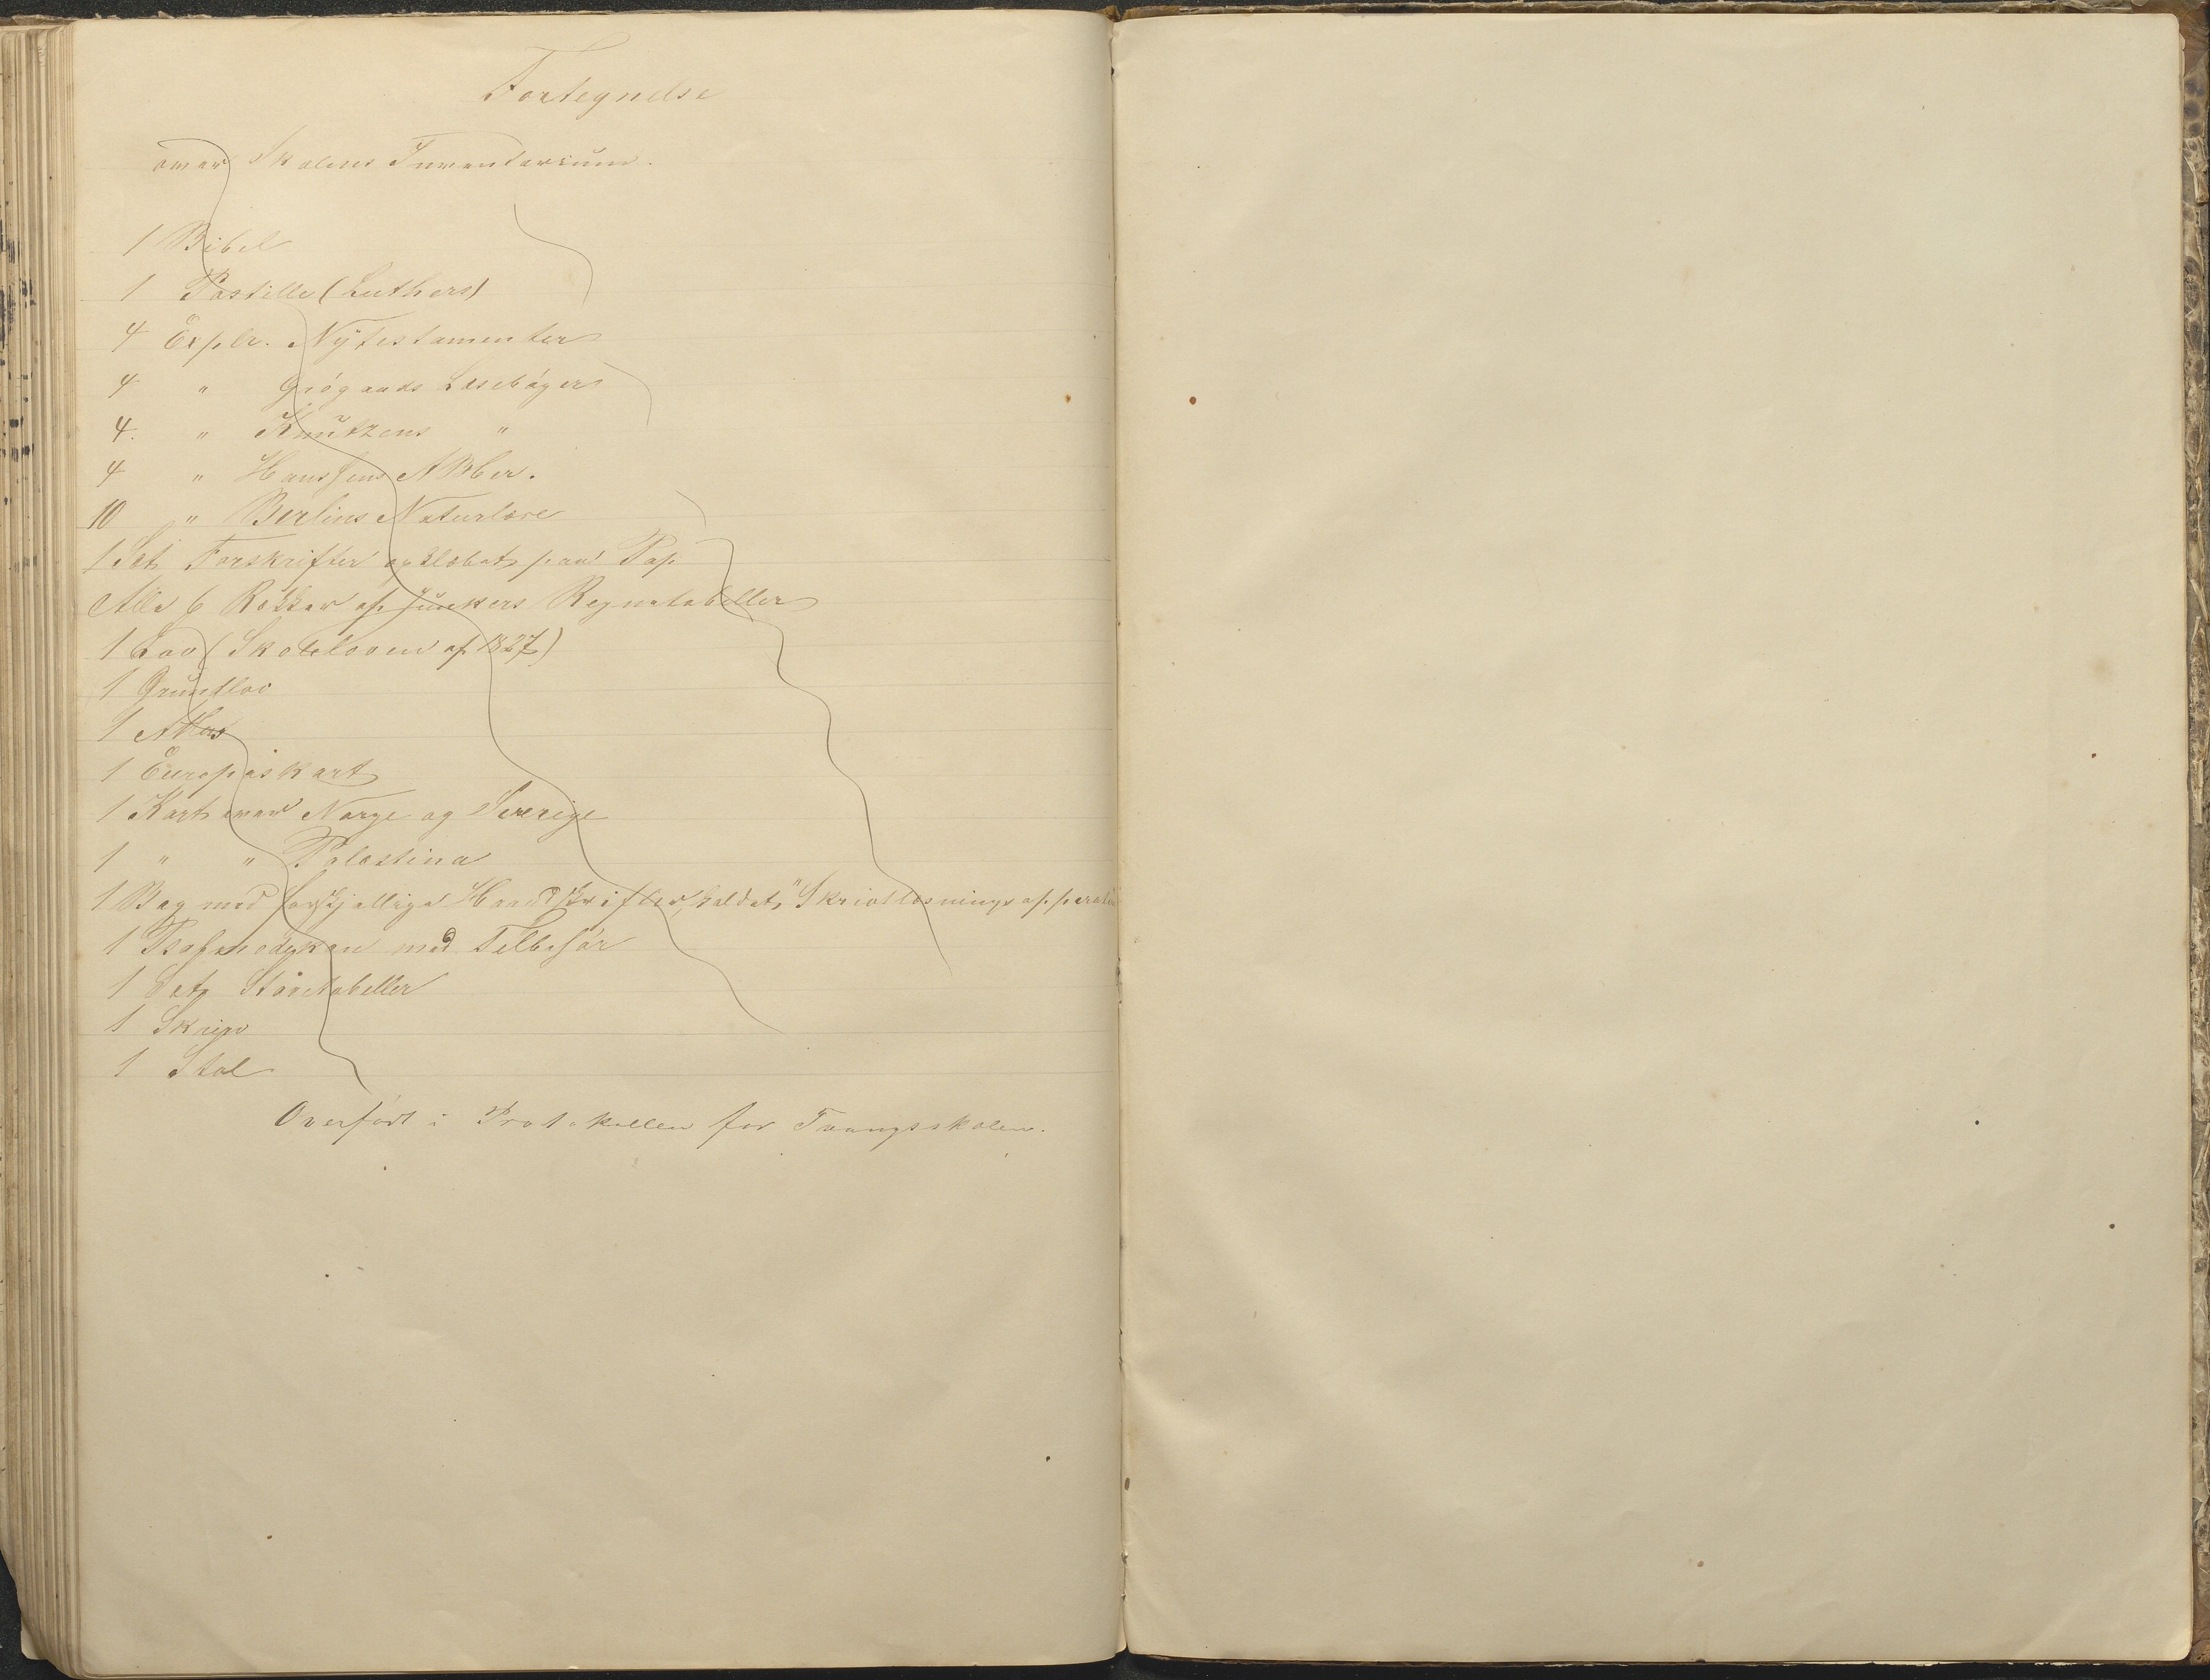 Fortegnelse
over Skolens Inventarium.
1 Bibel
1 Postille (Luthers)
4 Explr. Nytestamenter
4 " Grøgaards Læsebøger
4. " Knutzens "
4 " Hanssens ABber.
10 " Berlins Naturlære
1 Set Forskrifter opklæbet paa Pap
Alle 6 Rækker af Junkers Regnetabeller
1 Lov (Skoleloven af 1827)
1 Grundlov
1 Atlas
1 Europaskart
1 Kart over Norge og Sverige
1 " " Palæstina
1 Bog med forskjellige Haandskrifter, kaldet, "Skriftlæsningsapparatet
1 Psalmodykon med Tilbehør
1 Set Stavetabeller
1 Skrin
1 Stol
Overført i Protokollen for Tvangsskolen.